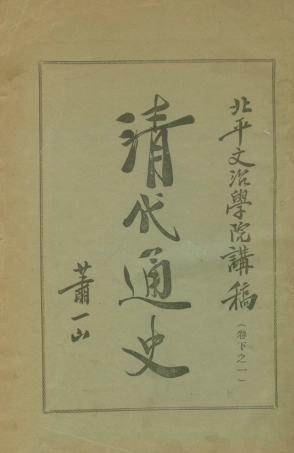 北平文治學院講稿(卷下之一)
清代通史
蕭一山